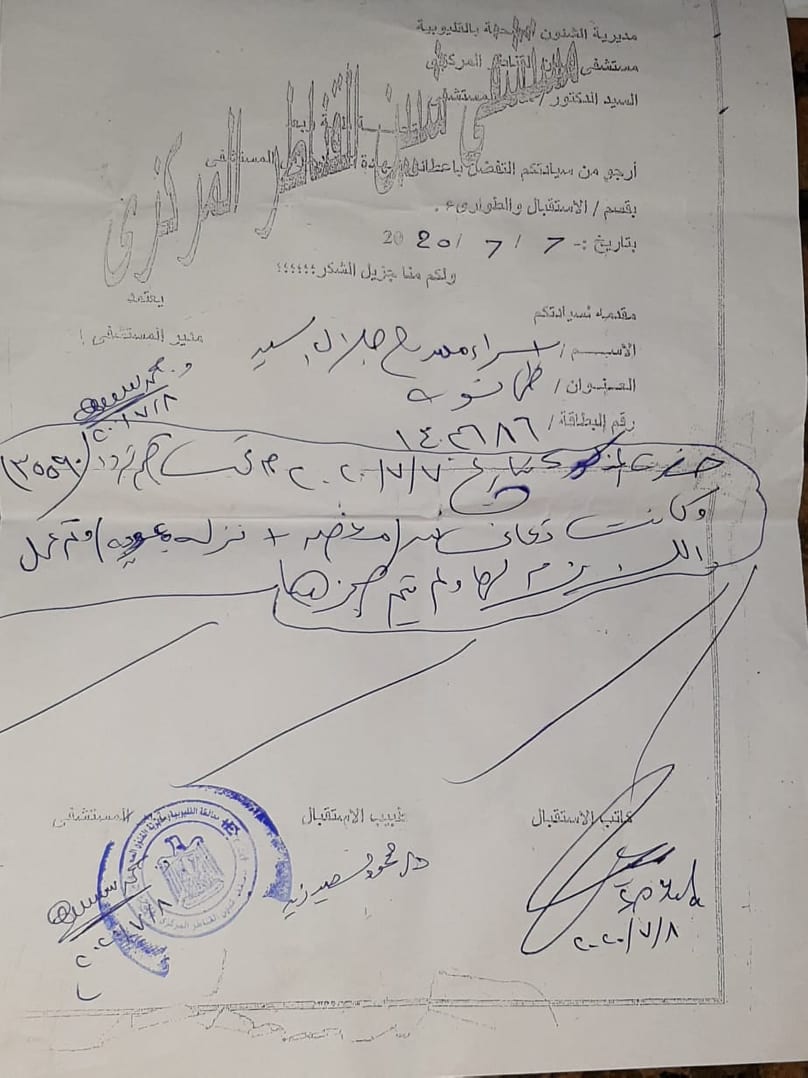 مديرية الشئون الصحة بالقليوبية
مستشفى القناطر المركزى
السيد الدكتور / المستشفى
مستشفى شبين القناطر المركزى
أرجو من سيادتكم التفضل باعطائى شهادة المستشفى
بقسم / الاستقبال والطوارئ .
بتاريخ :- 7 / 7 / 2020
ولكم منا جزيل الشكر ،،،،،،
يعتمد
مدير المستشفى /
٢٠/٧/٨
مقدمه لسيادتكم
الأســـم / اسراء ممدوح جلال السيد
العـنـوان / طحانوب
رقم البطاقة / ١٤٠٢٦٨٦
حضرت المذكورة بتاريخ ٢٠٢٠/٧/٧ م تحت رقم تردد (٣٥٥٩٠)
وكانت تعانى من (مغص + نزله معويه) وتم عمل
اللازم لها ولم يتم حجزها
كاتب الاستقبال
طبيب الاستقبال
المستشفى
د/ محمود السيد زيد
٢٠٢٠/٧/٨
٢٠٢٠/٧/٨
محافظة القليوبية مديرية الشئون الصحية
مستشفى شبين القناطر المركزى